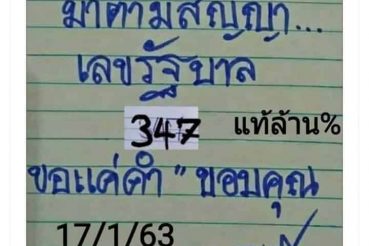 มาตามสัญญา...
เลขรัฐบาล
347 แท้ล้าน%
ขอแค่คำ "ขอบคุณ
17/1/63